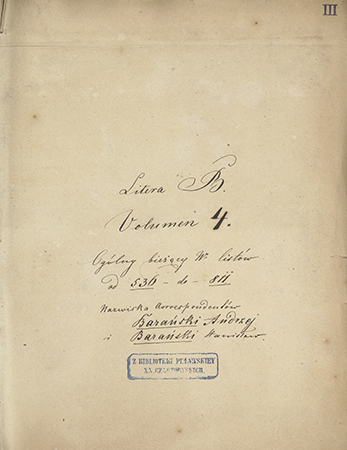 III
Litera B.
Volumen 4.
Ogólny bieżący Nr listów
od 536 - do - 811
Nazwiska Korrespondentów
Barański Andrzej
i Barański Stanisław
Z BIBLIOTEKI PUŁAWSKIEY
XX. CZARTORYSKICH.